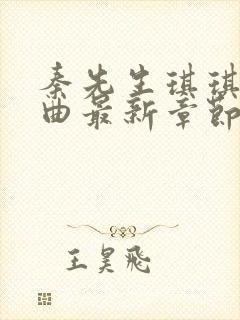 秦先生琪琪
曲最新章節
王昊飛